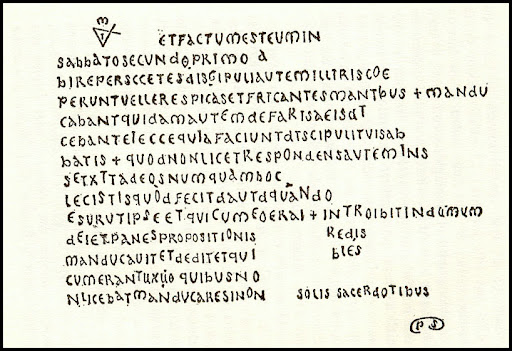 ETFACTUMESTEUMIN
SABBATOSECUNDOPRIMO A
BIREPERSCCETESDISGIPULIAUTEMILLIRISCOE
PERUNTVELLERESPICASETFRICANTESMANTBUS + MANDU
CABANTQUIDAMAUTEMDEFARISAEISDT
CEBANTEIECCEQUIAFACIUNTDTSCIPULITVISAB
BATIS + QUODNONLICETRESPONDENSAUTEMINS
SETXTTADEOSNUMQUAMBOC
LECISTISQUODFECITDAUTDQUANDO
ESURUTIPSEETQUICUMEOERAI + INTROIBITINDUMUM
DEIETPANESPROPOSITIONIS REDIS
MANDUCAUITETDEDITETQUI BLES
CUMERANTUXUO QUIBUSNO
NLICEBATMANDUCARESINON SOLIS SACERDOTIBUS
PS